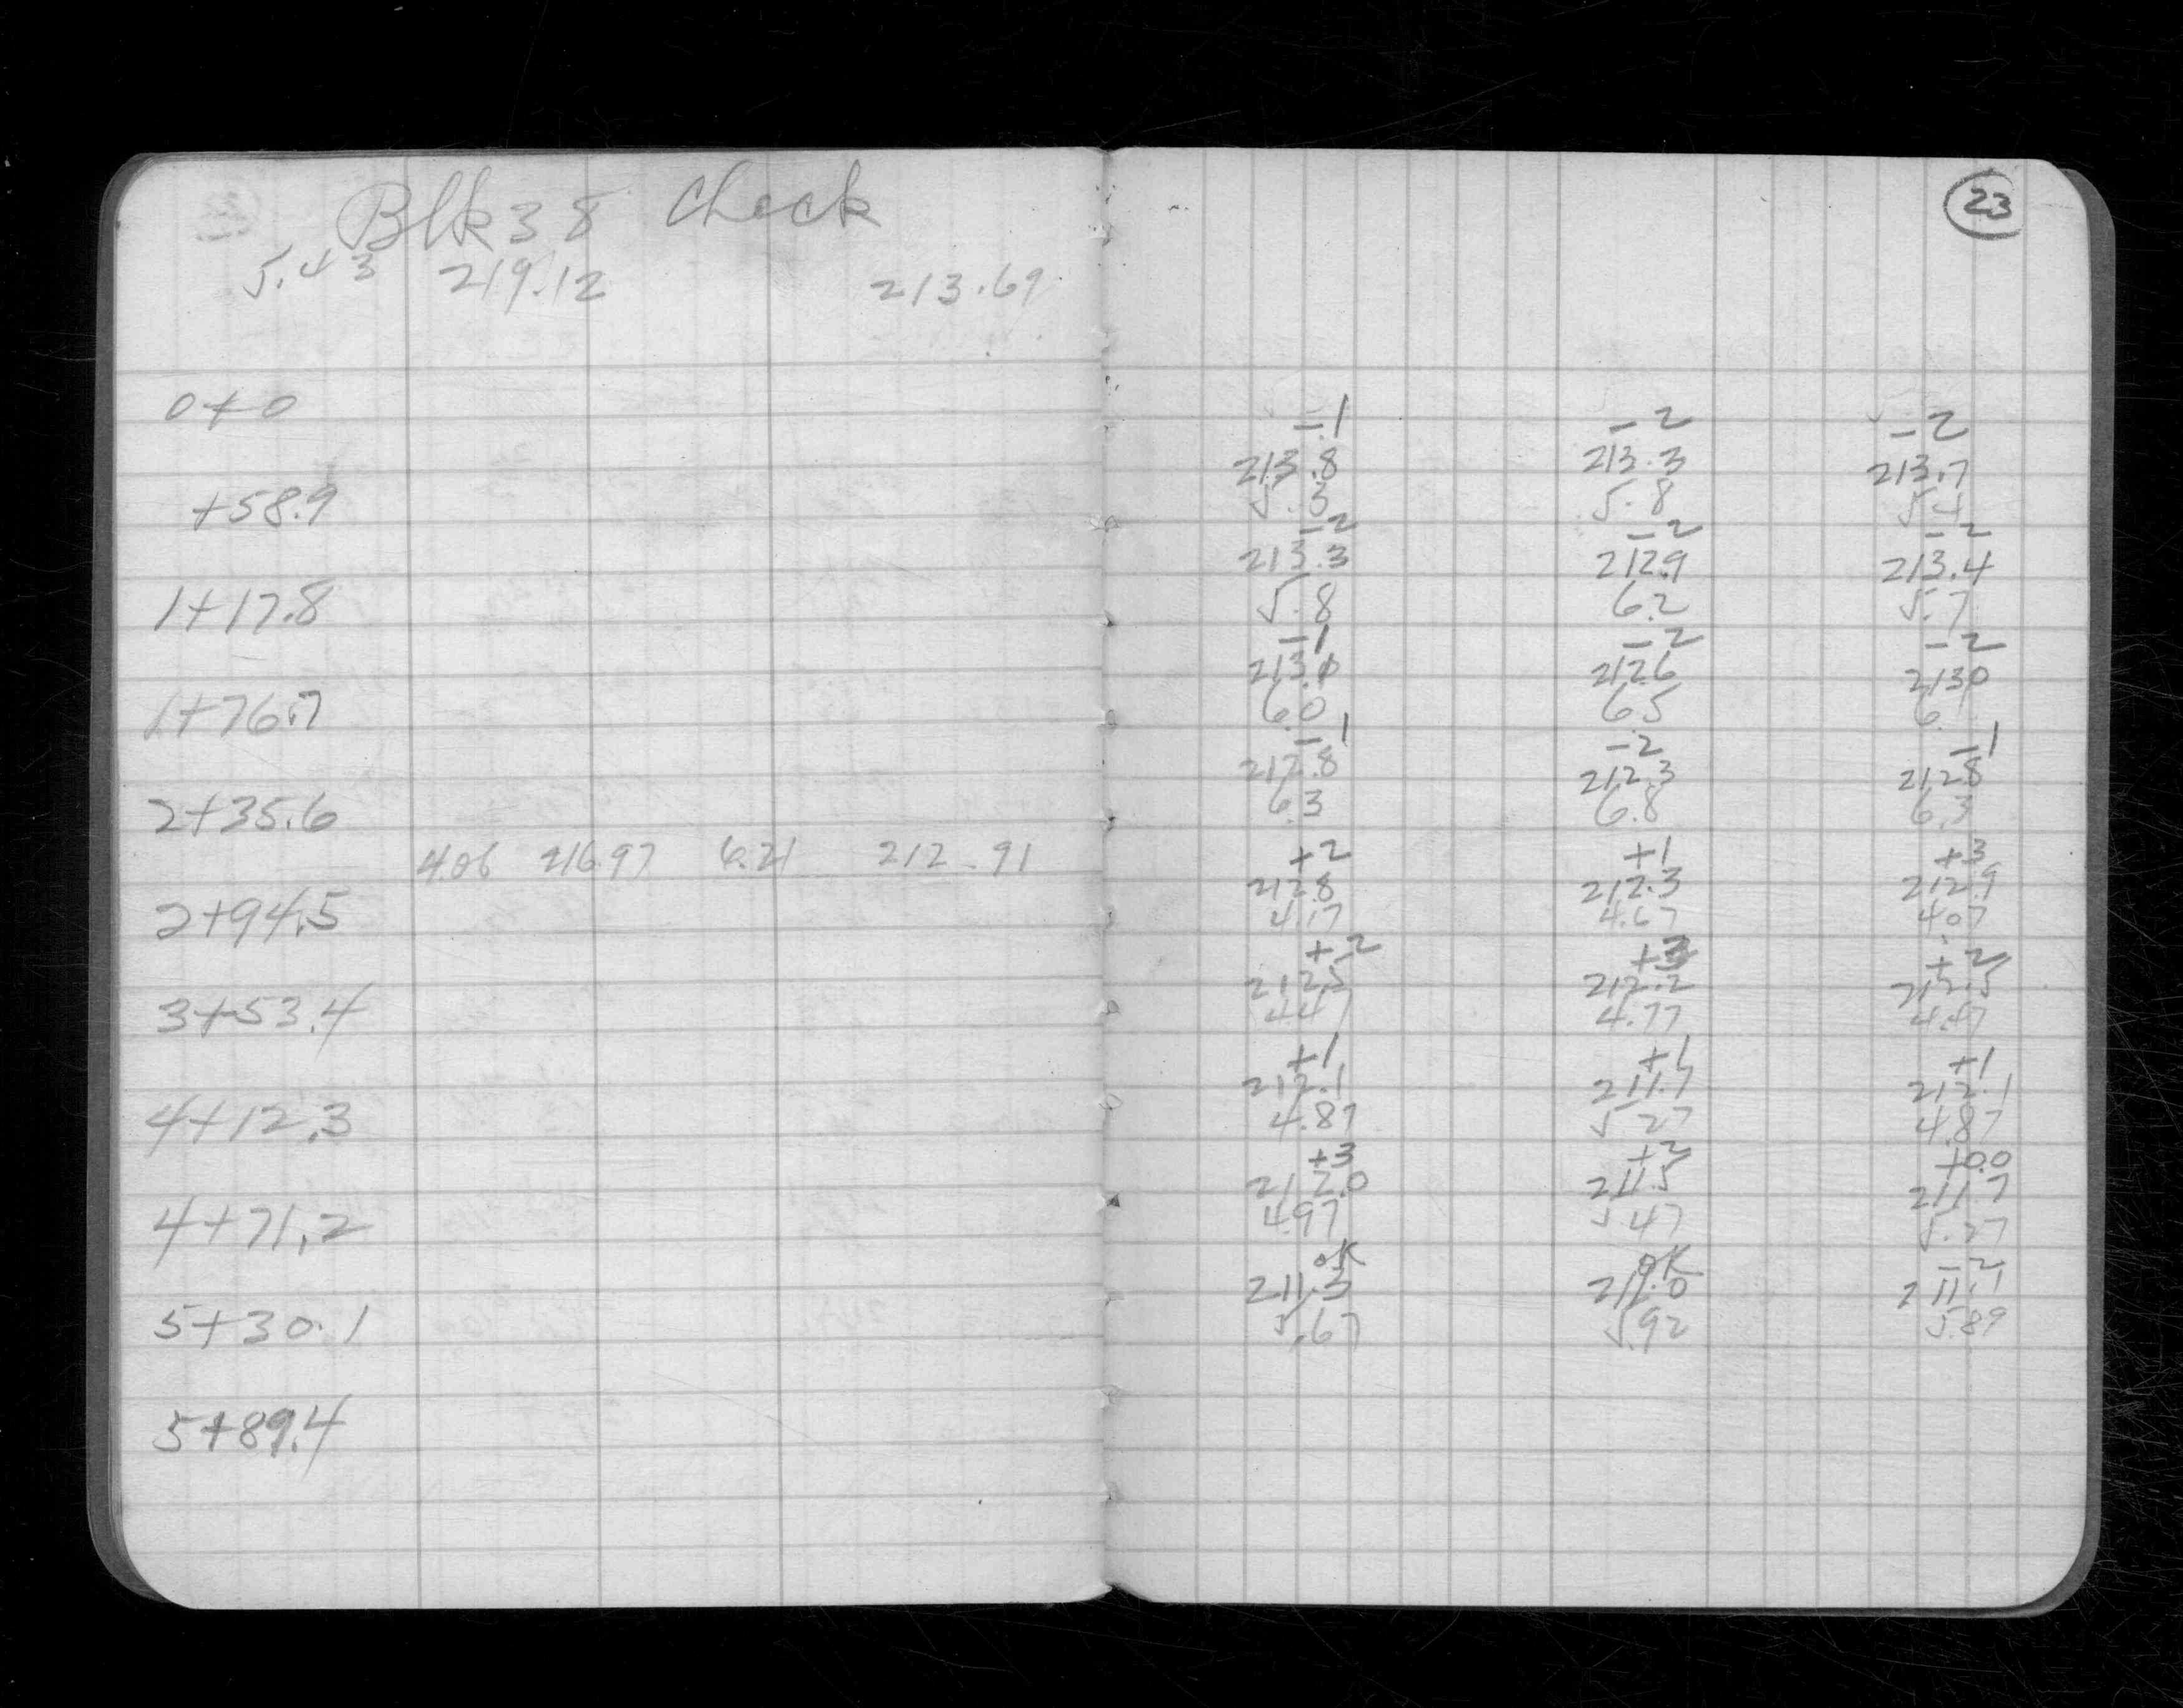 Blk 38 Check
23
5.43 219.12 213.69
0+0
-.1 -2 -2
213.8 213.3 213.7
+58.9 5.3 5.8 5.4
-2 -2 -2
213.3 212.9 213.4
1+17.8 5.8 6.2 5.7
-1 -2 -2
212.6 2130
1+76.7 6.0 6.5 6.
-1 -2 -1
212.8 212.3 212.8
2+35.6 6.3 6.8 6.3
4.06 216.97 6.21 212.91 +2 +1 +3
212.8 212.3 212.9
2+94.5 4.17 4.67 4.07
+2 +3 +2
212.5 212.2 212.5
3+53.4 4.47 4.77 4.47
+1 +1 +1
212.1 211.7 212.1
4+12.3 4.87 5.27 4.87
+3 +2 +0.0
212.0 211.5 211.7
4+71.2 4.97 5.47 5.27
OK OK -2
211.3 211.0 211.1
5+30.1 5.67 5.92 5.89
5+89.4